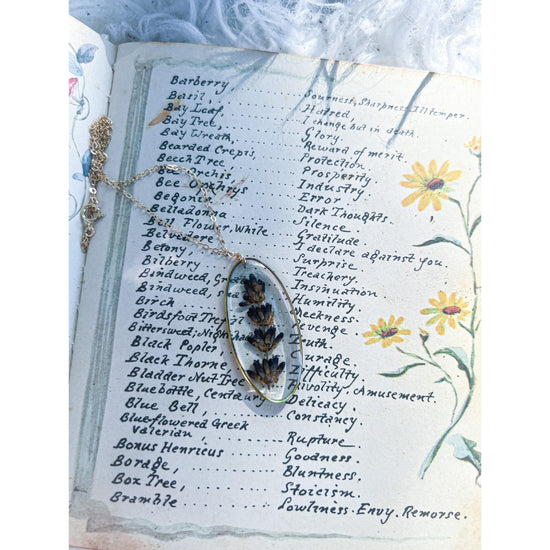 Barberry ........ Sourness, Sharpness. Ill temper.
Basil, ........ Hatred.
Bay Leaf, ........ I change but in death.
Bay Tree, ........ Glory.
Bay Wreath, ........ Reward of merit.
Bearded Crepis, ........ Protection.
Beech Tree, ........ Prosperity.
Bee ........ Industry.
Bee Ophrys ........ Error.
Begonia ........ Dark Thoughts.
Belladonna ........ Silence.
Bell Flower, White ........ Gratitude.
Belvedere ........ I declare against you.
Betony, ........ Surprise.
Bilberry ........ Treachery.
Bindweed, ........ Insinuation.
Bindweed, ........ Humility.
Birch ........ Meekness.
Birdsfoot ........ Revenge.
Bittersweet; ........
Black Popler, ........ Courage.
Black Thorne ........ Difficulty.
Bladder Nut Tree ........ Amusement.
Bluebottle, Centaury ........ Delicacy.
Blue Bell, ........ Constancy.
Blue-flowered Greek
Valerian, ........ Rupture.
Bonus Henricus ........ Goodness.
Borage, ........ Bluntness.
Box Tree, ........ Stoicism.
Bramble ........ Lowliness. Envy. Remorse.